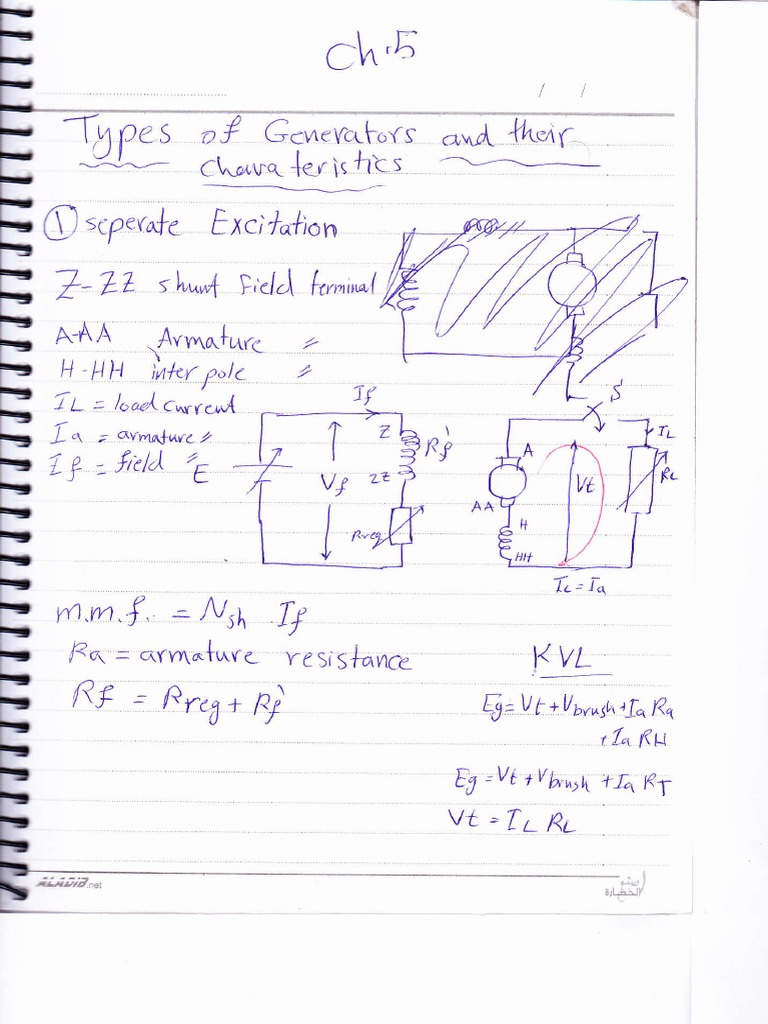 Ch.5
/ /
Types of Generators and their
charateristics
① seperate Excitation
Z-ZZ shunt field terminal
A-AA Armature "
H-HH inter pole "
IL = load current
Ia = armature "
If = field "
If
E
Vf
Z
ZZ
Rf'
Rreg
S
A
AA
H
HH
Vt
IL
RL
IL = Ia
m.m.f. = Nsh If
Ra = armature resistance
Rf = Rreg + Rf'
KVL
Eg = Vt + Vbrush + Ia Ra
+ Ia RH
Eg = Vt + Vbrush + Ia RT
Vt = IL RL
ALADIB.net